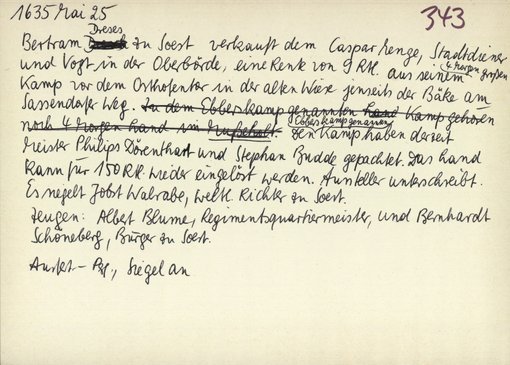 1635 Mai 25
343
Dreses
Bertram zu Soest verkauft dem Caspar Menge, Stadtdiener
und Vogt in der Oberbörde, eine Rente von 9 Rtl. aus seinem 4 Morgen großen
Kamp vor dem Osthofentor in der alten Wiese jenseits der Bäke am
Sassendorfer Weg. In dem Ebberskamp genannten Land Kamp gehören
noch 4 Morgen Land im Ebberskamp genannten
Den Kamp haben derzeit
Meister Philips Dörenthart und Stephan Budde gepachtet. Das Land
kann für 150 Rtl. wieder eingelöst werden. Aussteller unterschreibt.
Es siegelt Jobst Walrabe, weltl. Richter zu Soest.
Zeugen: Albert Blume, Regimentsquartiermeister, und Bernhardt
Schöneberg, Bürger zu Soest.
Ausf. - Pg., Siegel an